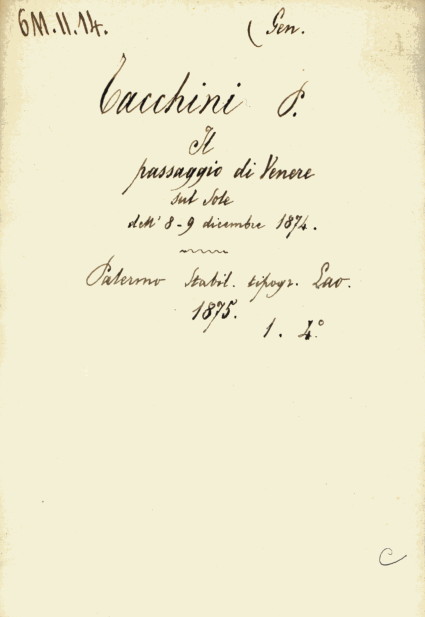 6M.II.14.
(Gen.
Tacchini P.
Il
passaggio di Venere
sul Sole
dell' 8-9 dicembre 1874.
Palermo Stabil. tipogr. Lao.
1875.
1. 4°
C